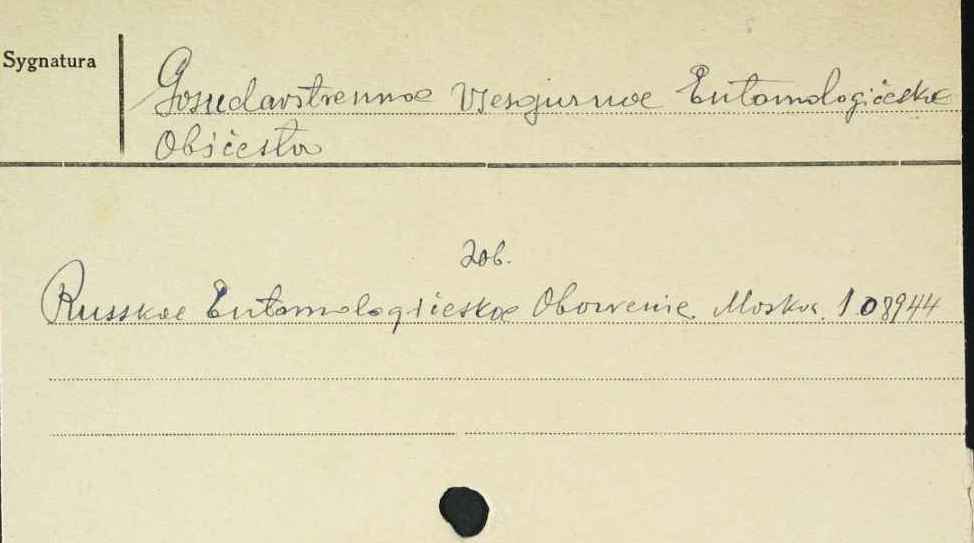 Sygnatura
Gosudarstvennoe Vsesojuznoe Entomologičeskoe
Obščestvo
Zob.
Russkoe Entomologičeskoe Obozrenie. Moskva. 108944